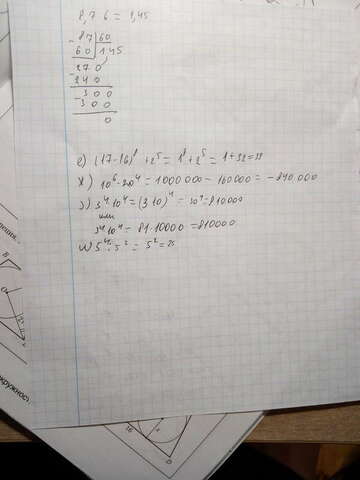 8,7 6 = 1,45
87 60
60 1,45
270
240
300
300
0
е) (17-16)⁸ + 2⁵ = 1⁸ + 2⁵ = 1 + 32 = 33
ж) 10⁶ - 20⁴ = 1000 000 - 160000 = -840.000
з) 3⁴ · 10⁴ = (3·10)⁴ = 30⁴ = 810.000
или
3⁴·10⁴ = 81·10000 = 810000
и) 5⁴ : 5² = 5² = 25